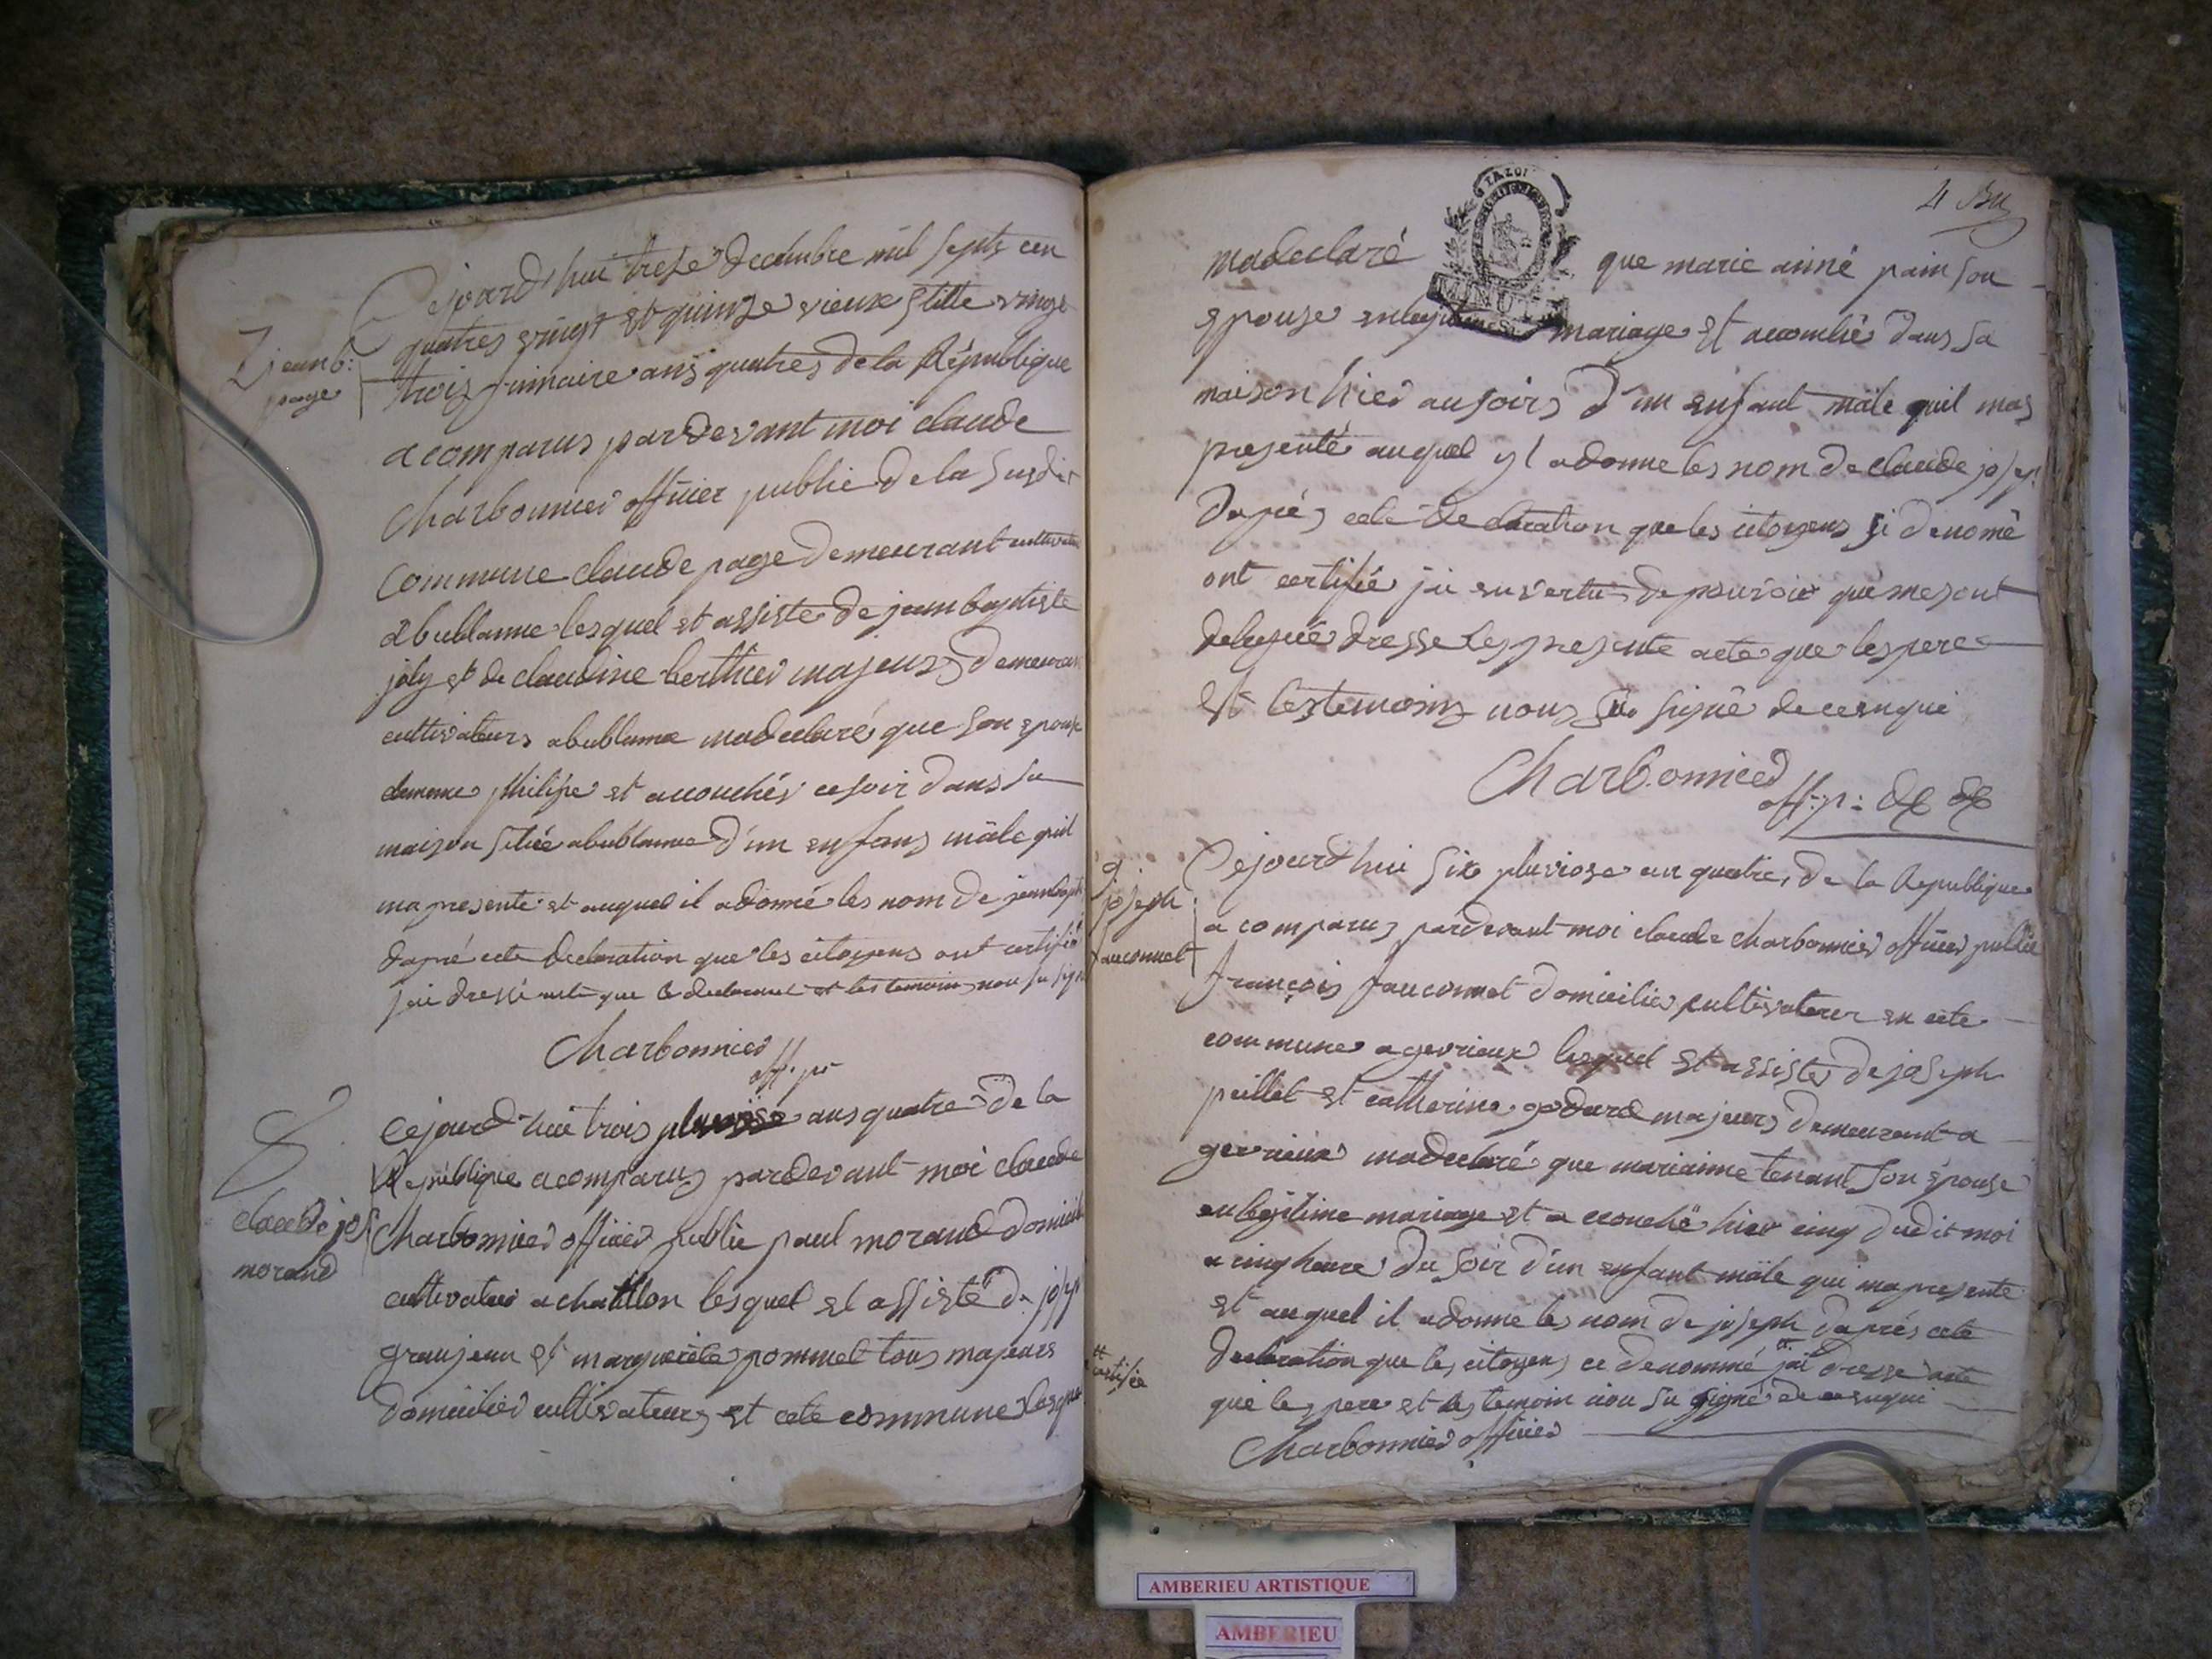 7 jean b:
page
Cejourd'hui treze decembre mil septs cen
quatres vingt et quinze vieux stille vingt
trois frimaire ans quatres de la République
a comparus pardevant moi claude
Charbonnier officier public de la susdit
commune claude page demeurant cultivateur
a bublanne lesquel et assiste de jean baptiste
joly et de claudine berthier majeurs demeurant
cultivateurs a bublanne madeclaré que son epouse
philipe et accouchés ce soir dans sa
maison située a bublanne d'un enfans mâle quil
ma presente et auquel il a donné les nom de jean bapt
dapré cete declaration que les citoyens ont certifié
jai dressé acte que le declarant et les temoins non su signé
Charbonnier
off. p.
8
claude jos
morand
Cejourd'hui trois pluviose ans quatre de la
République a comparus pardevant moi claude
Charbonnier officier public paul morand domicilié
cultivateur a chatillon lesquel et assisté de josep
granjean et marguerite pommet tous majeurs
domicilié cultivateurs et cete commune lesquel
4 Bu
LA LOI
MINUTE
madeclaré que marie anné pain son
epouse en legitime mariage et accouché dans sa
maison hier au soirs d'un enfant mâle quil mas
presenté auquel yl a donne les nom de claude josep
dapré cete declaration que les citoyens si denomé
ont certifié jai en vertu de pouvoir qui me sont
delegué dresse les presente acte que les pere
et les temoins nous su signé de ce enqui
Charbonnier
off: p:
9
joseph
fauconnet
Cejourd'hui six pluviose an quatre de la Republique
a comparus pardevant moi claude charbonnier officier public
françois fauconnet domicilié cultivateur en cete
commune a gevrieux lesquel et assisté de joseph
peillet et catherine godard majeurs demeurant a
gevrieux madeclaré que marianne tenant son epouse
en legitime mariage et a ccouché hier cinq dudit moi
a cinq heure du soir d'un enfant mâle qui ma presente
et auquel il a donne les nom de joseph daprés cete
declaration que les citoyens ce denommé jai dresse acte
certifié
que les pere et les temoin non su signé de ce enqui
Charbonnier officier
AMBERIEU ARTISTIQUE
AMBERIEU